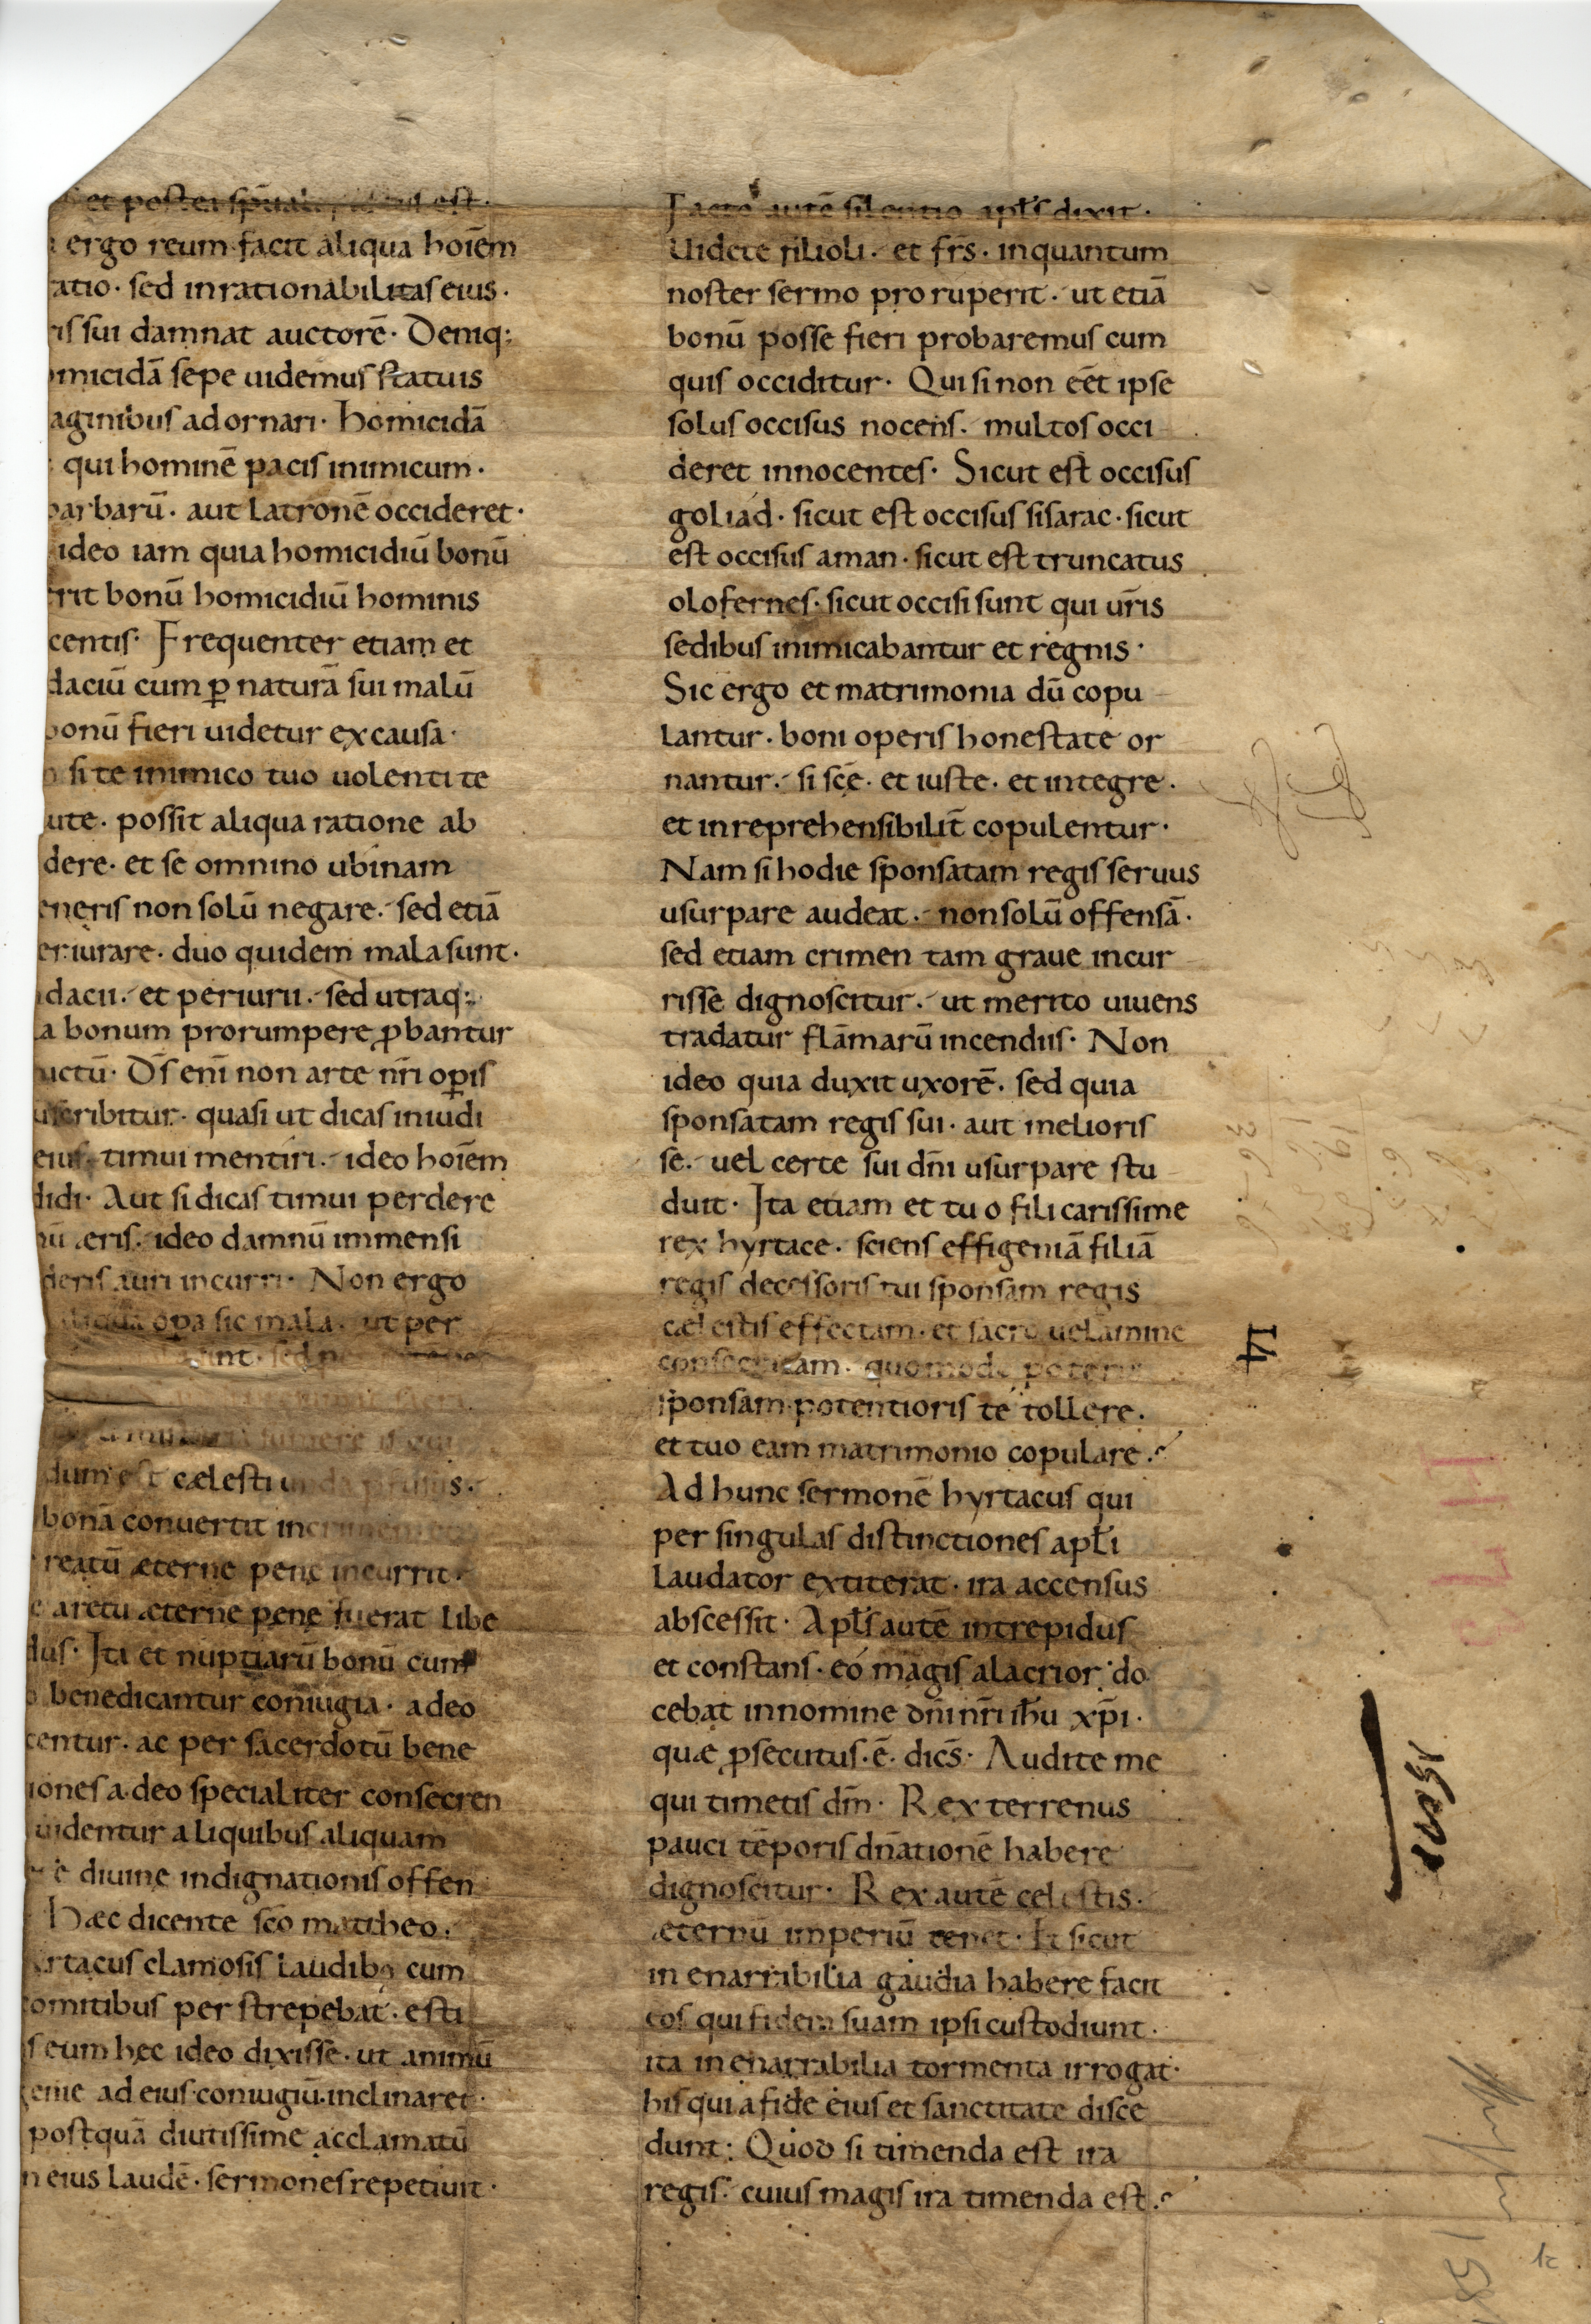 et postea sp̄ual est·
ergo reum facit aliqua hoiēm
atio· sed inrationabilitas eius·
is sui damnat auctorē· Deniq:
micidā sepe uidemus statuis
aginibus adornari· homicidā
qui hominē pacis inimicum·
barbarū· aut latronē occideret·
ideo iam quia homicidiū bonū
rit bonū homicidiū hominis
centis· Frequenter etiam et
daciū cum ꝑ naturā sui malū
bonū fieri uidetur ex causa·
si te inimico tuo uolenti te
ute· possit aliqua ratione ab
dere· et se omnino ubinam
eneris non solū negare· sed etiā
eriurare· duo quidem mala sunt·
dacii· et periurii· sed utraq:
a bonum prorumpere ꝓbantur
uctū· Ds̄ enī non arte nr̄i oꝑis
scribitur· quasi ut dicas inuidi
eius· timui mentiri· ideo hoiēm
didi· Aut si dicas timui perdere
æris· ideo damnū immensi
deris auri incurri· Non ergo
oꝑa sic mala· ut per
int· sed
sumere
dum est cælesti
bonā conuertit in
reatū æterne pene incurrit·
e aretu æterne pene fuerat libe
dus· Ita et nuptiarū bonū cum
benedicantur coniugia· a deo
centur· ac per sacerdotū bene
iones a deo specialiter consecren
uidentur aliquibus aliquam
e diuine indignationis offen
Hæc dicente sc̄o mattheo·
rtacus clamosis laudibꝫ cum
comitibus perstrepebat· esti
s eum hec ideo dixisse· ut animū
genie ad eius coniugiū inclinaret·
postquā diutissime acclamatū
n eius laudē· sermones repetiuit·
Facto autē silentio apl̄s dixit·
Uidete filioli· et fr̄s· inquantum
noster sermo proruperit· ut etiā
bonū posse fieri probaremus cum
quis occiditur· Qui si non eēt ipse
solus occisus nocens· multos occi
deret innocentes· Sicut est occisus
goliad· sicut est occisus sisarac· sicut
est occisus aman· sicut est truncatus
olofernes· sicut occisi sunt qui ur̄is
sedibus inimicabantur et regnis·
Sic ergo et matrimonia dū copu
lantur· boni operis honestate or
nantur· si sc̄e· et iuste· et integre·
et inreprehensibilit̄ copulentur·
Nam si hodie sponsatam regis seruus
usurpare audeat· non solū offensā·
sed etiam crimen tam graue incur
risse dignoscitur· ut merito uiuens
tradatur flāmarū incendiis· Non
ideo quia duxit uxorē· sed quia
sponsatam regis sui· aut melioris
se· uel certe sui dn̄i usurpare stu
duit· Ita etiam et tu o fili carissime
rex hyrtace· sciens effigeniā filiā
regis decessoris tui sponsam regis
cælestis effectam· et sacro uelamine
consecratam· quomodo poteris
sponsam potentioris te tollere·
et tuo eam matrimonio copulare·
Ad hunc sermonē hyrtacus qui
per singulas distinctiones apl̄i
laudator extiterat· ira accensus
abscessit· Apl̄s autē intrepidus
et constans· eo magis alacrior do
cebat in nomine dn̄i nr̄i ih̄u xp̄i·
quæ ꝓsecutus· ē· dic̄s· Audite me
qui timetis dm̄· Rex terrenus
pauci tēporis dn̄ationē habere
dignoscitur· Rex autē celestis·
æternū imperiū tenet· Et sicut
in enarrabilia gaudia habere facit
eos qui fidem suam ipsi custodiunt·
ita inenarrabilia tormenta irrogat·
his qui a fide eius et sanctitate disce
dunt: Quod si timenda est ira
regis· cuius magis ira timenda est·
14